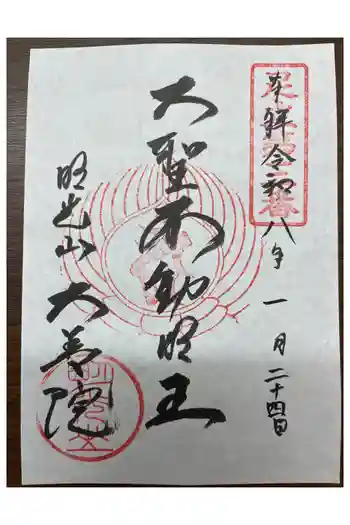 来拝令和八年一月二十四日
大聖不動明王
明光山大善院